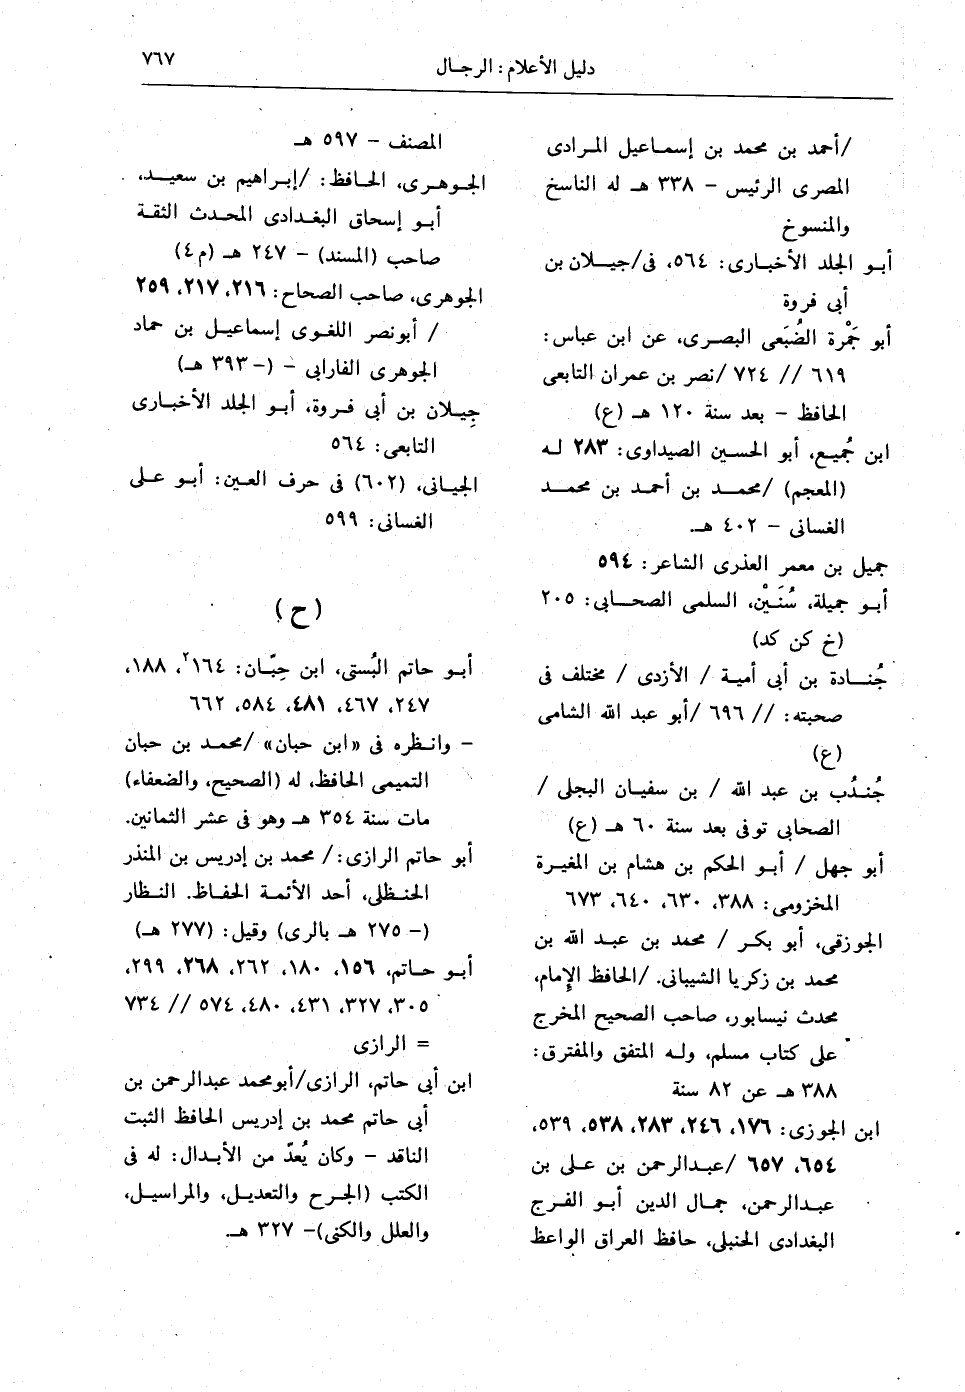 دليل الأعلام : الرجـال
٧٦٧
/أحمد بن محمد بن إسمـاعيل المـرادى
المصرى الرئيس - ٣٣٨ هـ له الناسخ
والمنسوخ
أبـو الجلد الأخبـارى: ٥٦٤، فى/جيـلان بن
أبى فروة
أبو جَمْرة الضُبَعى البصـرى، عن ابن عباس:
٦١٩ // ٧٢٤ /نصر بن عمران التابعى
الحافظ - بعد سنة ١٢٠ هـ (ع)
ابن جُميـع، أبو الحسـين الصيداوى: ٢٨٣ لـه
(المعجم) /محمـد بن أحمـد بن محمـد
الغسانى - ٤٠٢ هـ.
جميل بن معمر العذرى الشاعر: ٥٩٤
أبـو جميلة، سُنَـيْن، السلمى الصحـابى: ٢٠٥
(خ كن كد)
جُنـادة بن أبى أميـة / الأزدى / مختلف فى
صحبته: // ٦٩٦ /أبو عبد الله الشامى
(ع)
جُنـدُب بن عبد الله / بن سفيـان البجلى /
الصحابى توفى بعد سنة ٦٠ هـ (ع)
أبو جهل / أبـو الحكم بن هشام بن المغيرة
المخزومى: ٣٨٨، ٦٣٠، ٦٤٠، ٦٧٣
الجوزقى، أبو بكـر / محمد بن عبـد الله بن
محمد بن زكريا الشيبانى. /الحافظ الإمام،
محدث نيسابور، صاحب الصحيح المخرج
على كتاب مسلم، ولـه المتفق والمفترق:
٣٨٨ هـ عن ٨٢ سنة
ابن الجوزى: ١٧٦، ٢٤٦، ٢٨٣، ٥٣٨، ٥٣٩،
٦٥٤، ٦٥٧ /عبـدالرحمن بن عـلى بن
عبـدالرحمن، جمـال الدين أبـو الفـرج
البغدادى الحنبلى، حافظ العراق الواعظ
المصنف - ٥٩٧ هـ
الجـوهـرى، الحـافظ: /إبـراهيم بن سعيـد،
أبـو إسحاق البغـدادى المحـدث الثقـة
صاحب (المسند) - ٢٤٧ هـ (م٤)
الجوهرى، صاحب الصحاح: ٢١٦، ٢١٧، ٢٥٩
/ أبونصر اللغـوى إسماعيـل بن حماد
الجوهرى الفارابى - (-٣٩٣ هـ)
جِيـلان بن أبى فـروة، أبـو الجلد الأخبـارى
التابعى: ٥٦٤
الجيـانى، (٦٠٢) فى حرف العـين: أبـو عـلى
الغسانى: ٥٩٩
(ح)
أبـو حاتم البُستى، ابن حِبّـان: ١٦٤²، ١٨٨،
٢٤٧، ٤٦٧، ٤٨١، ٥٨٤، ٦٦٢
- وانـظره فى «ابن حبان» /محمـد بن حبان
التميمى الحافظ، له (الصحيح، والضعفاء)
مات سنة ٣٥٤ هـ وهو فى عشر الثمانين.
أبو حاتم الرازى: / محمد بن إدريس بن المنذر
الحنـظلى، أحد الأئمـة الحفـاظ. النـظار
(- ٢٧٥ هـ بالرى) وقيل: (٢٧٧ هـ)
أبـو حـاتم، ١٥٦، ١٨٠، ٢٦٢، ٢٦٨، ٢٩٩،
٣٠٥، ٣٢٧، ٤٣١، ٤٨٠، ٥٧٤ // ٧٣٤
= الرازى
ابن أبى حاتم، الرازى/أبومحمد عبدالرحمن بن
أبى حاتم محمد بن إدريس الحافظ الثبت
الناقد - وكان يُعدّ من الأبـدال: له فى
الكتب (الجـرح والتعديـل، والمراسيـل،
والعلل والكنى)- ٣٢٧ هـ.